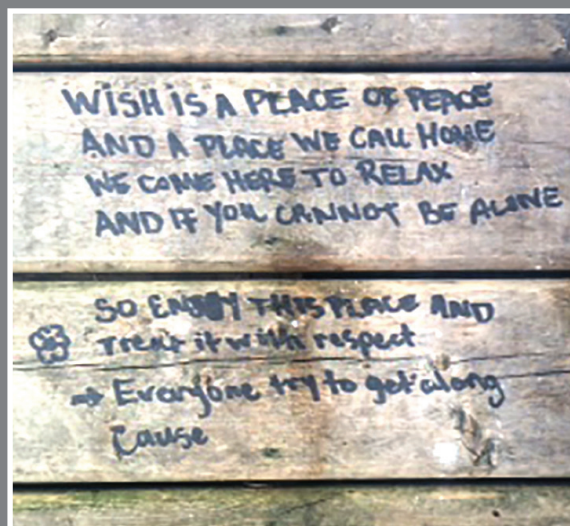 WISH IS A PLACE OF PEACE
AND A PLACE WE CALL HOME
WE COME HERE TO RELAX
AND IF YOU CANNOT BE ALONE
SO ENJOY THIS PLACE AND
treat it with respect
→ Everyone try to get along
Cause